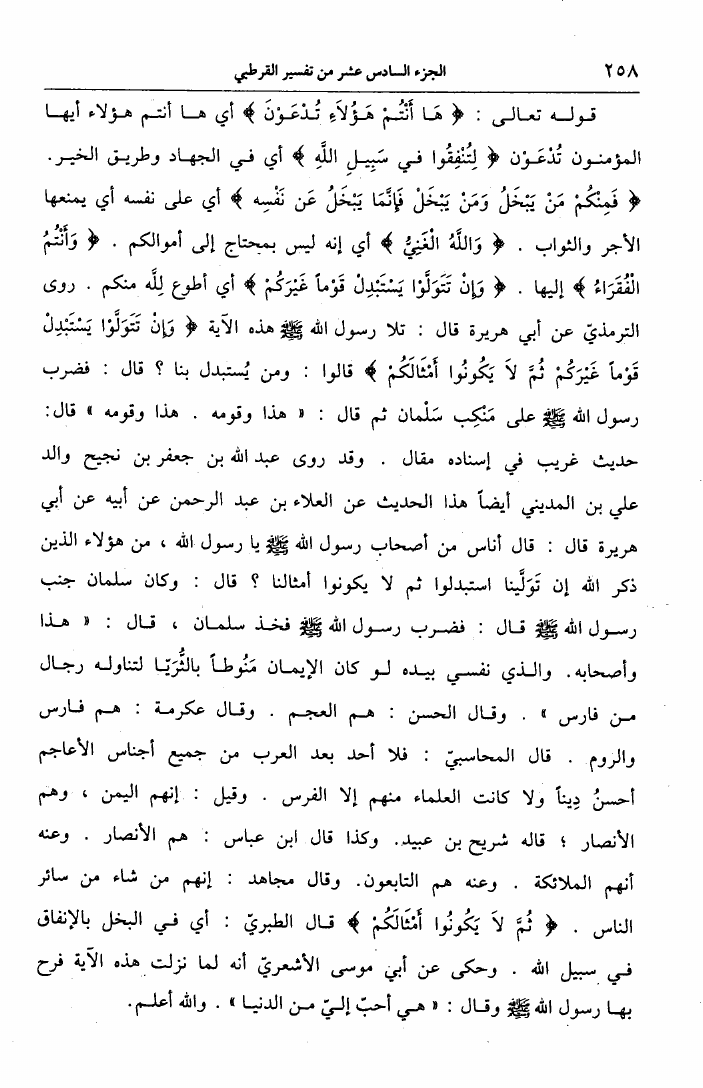 ٢٥٨ الجزء السادس عشر من تفسير القرطبي
قولـه تعـالـى : ﴿ هَا أَنْتُمْ هَؤُلاَءِ تُدْعَوْنَ ﴾ أي هـا أنتـم هـؤلاء أيهـا
المؤمنـون تُدْعَـوْن ﴿ لِتُنْفِقُوا فـي سَبِيـلِ اللَّهِ ﴾ أي فـي الجهـاد وطريـق الخيـر.
﴿ فَمِنْكُمْ مَنْ يَبْخَلُ وَمَنْ يَبْخَلْ فَإِنَّمَا يَبْخَلُ عَن نَفْسِه ﴾ أي على نفسه أي يمنعها
الأجر والثواب . ﴿ وَاللَّهُ الْغَنِيُّ ﴾ أي إنه ليس بمحتاج إلى أموالكم . ﴿ وَأَنْتُمُ
الْفُقَرَاءُ ﴾ إليها . ﴿ وَإِنْ تَتَوَلَّوْا يَسْتَبْدِلْ قَوْماً غَيْرَكُمْ ﴾ أي أطوع للَّه منكم . روى
الترمذيّ عن أبي هريرة قال : تلا رسول الله ﷺ هذه الآية ﴿ وَإِنْ تَتَوَلَّوْا يَسْتَبْدِلْ
قَوْماً غَيْرَكُمْ ثُمَّ لاَ يَكُونُوا أَمْثَالَكُمْ ﴾ قالوا : ومن يُستبدل بنا ؟ قال : فضرب
رسول الله ﷺ على مَنْكِب سَلْمان ثم قال : « هذا وقومه . هذا وقومه » قال:
حديث غريب في إسناده مقال . وقد روى عبد الله بن جعفر بن نجيح والد
علي بن المديني أيضاً هذا الحديث عن العلاء بن عبد الرحمن عن أبيه عن أبي
هريرة قال : قال أناس من أصحاب رسول الله ﷺ يا رسول الله ، من هؤلاء الذين
ذكر الله إن تَوَلَّينا استبدلوا ثم لا يكونوا أمثالنا ؟ قال : وكان سلمان جنب
رسـول الله ﷺ قـال : فضـرب رسـول الله ﷺ فخـذ سلمـان ، قـال : « هـذا
وأصحابه. والـذي نفسـي بيـده لـو كان الإيمـان مَنُوطـاً بالثُّرَيّـا لتناولـه رجـال
مـن فارس » . وقـال الحسن : هـم العجـم . وقـال عكرمـة : هـم فـارس
والروم . قال المحاسبيّ : فلا أحد بعد العرب من جميع أجناس الأعاجم
أحسنُ دِيناً ولا كانت العلماء منهم إلا الفرس . وقيل : إنهم اليمن ، وهم
الأنصار ؛ قاله شريح بن عبيد. وكذا قال ابن عباس : هم الأنصار . وعنه
أنهم الملائكة . وعنه هم التابعون. وقال مجاهد : إنهم من شاء من سائر
الناس . ﴿ ثُمَّ لاَ يَكُونُوا أَمْثَالَكُمْ ﴾ قـال الطبريّ : أي فـي البخل بالإنفاق
فـي سبيل الله . وحكى عن أبي موسى الأشعريّ أنه لما نزلت هذه الآية فرح
بهـا رسول الله ﷺ وقـال : « هـي أحبّ إلـيّ مـن الدنيـا » . والله أعلـم.